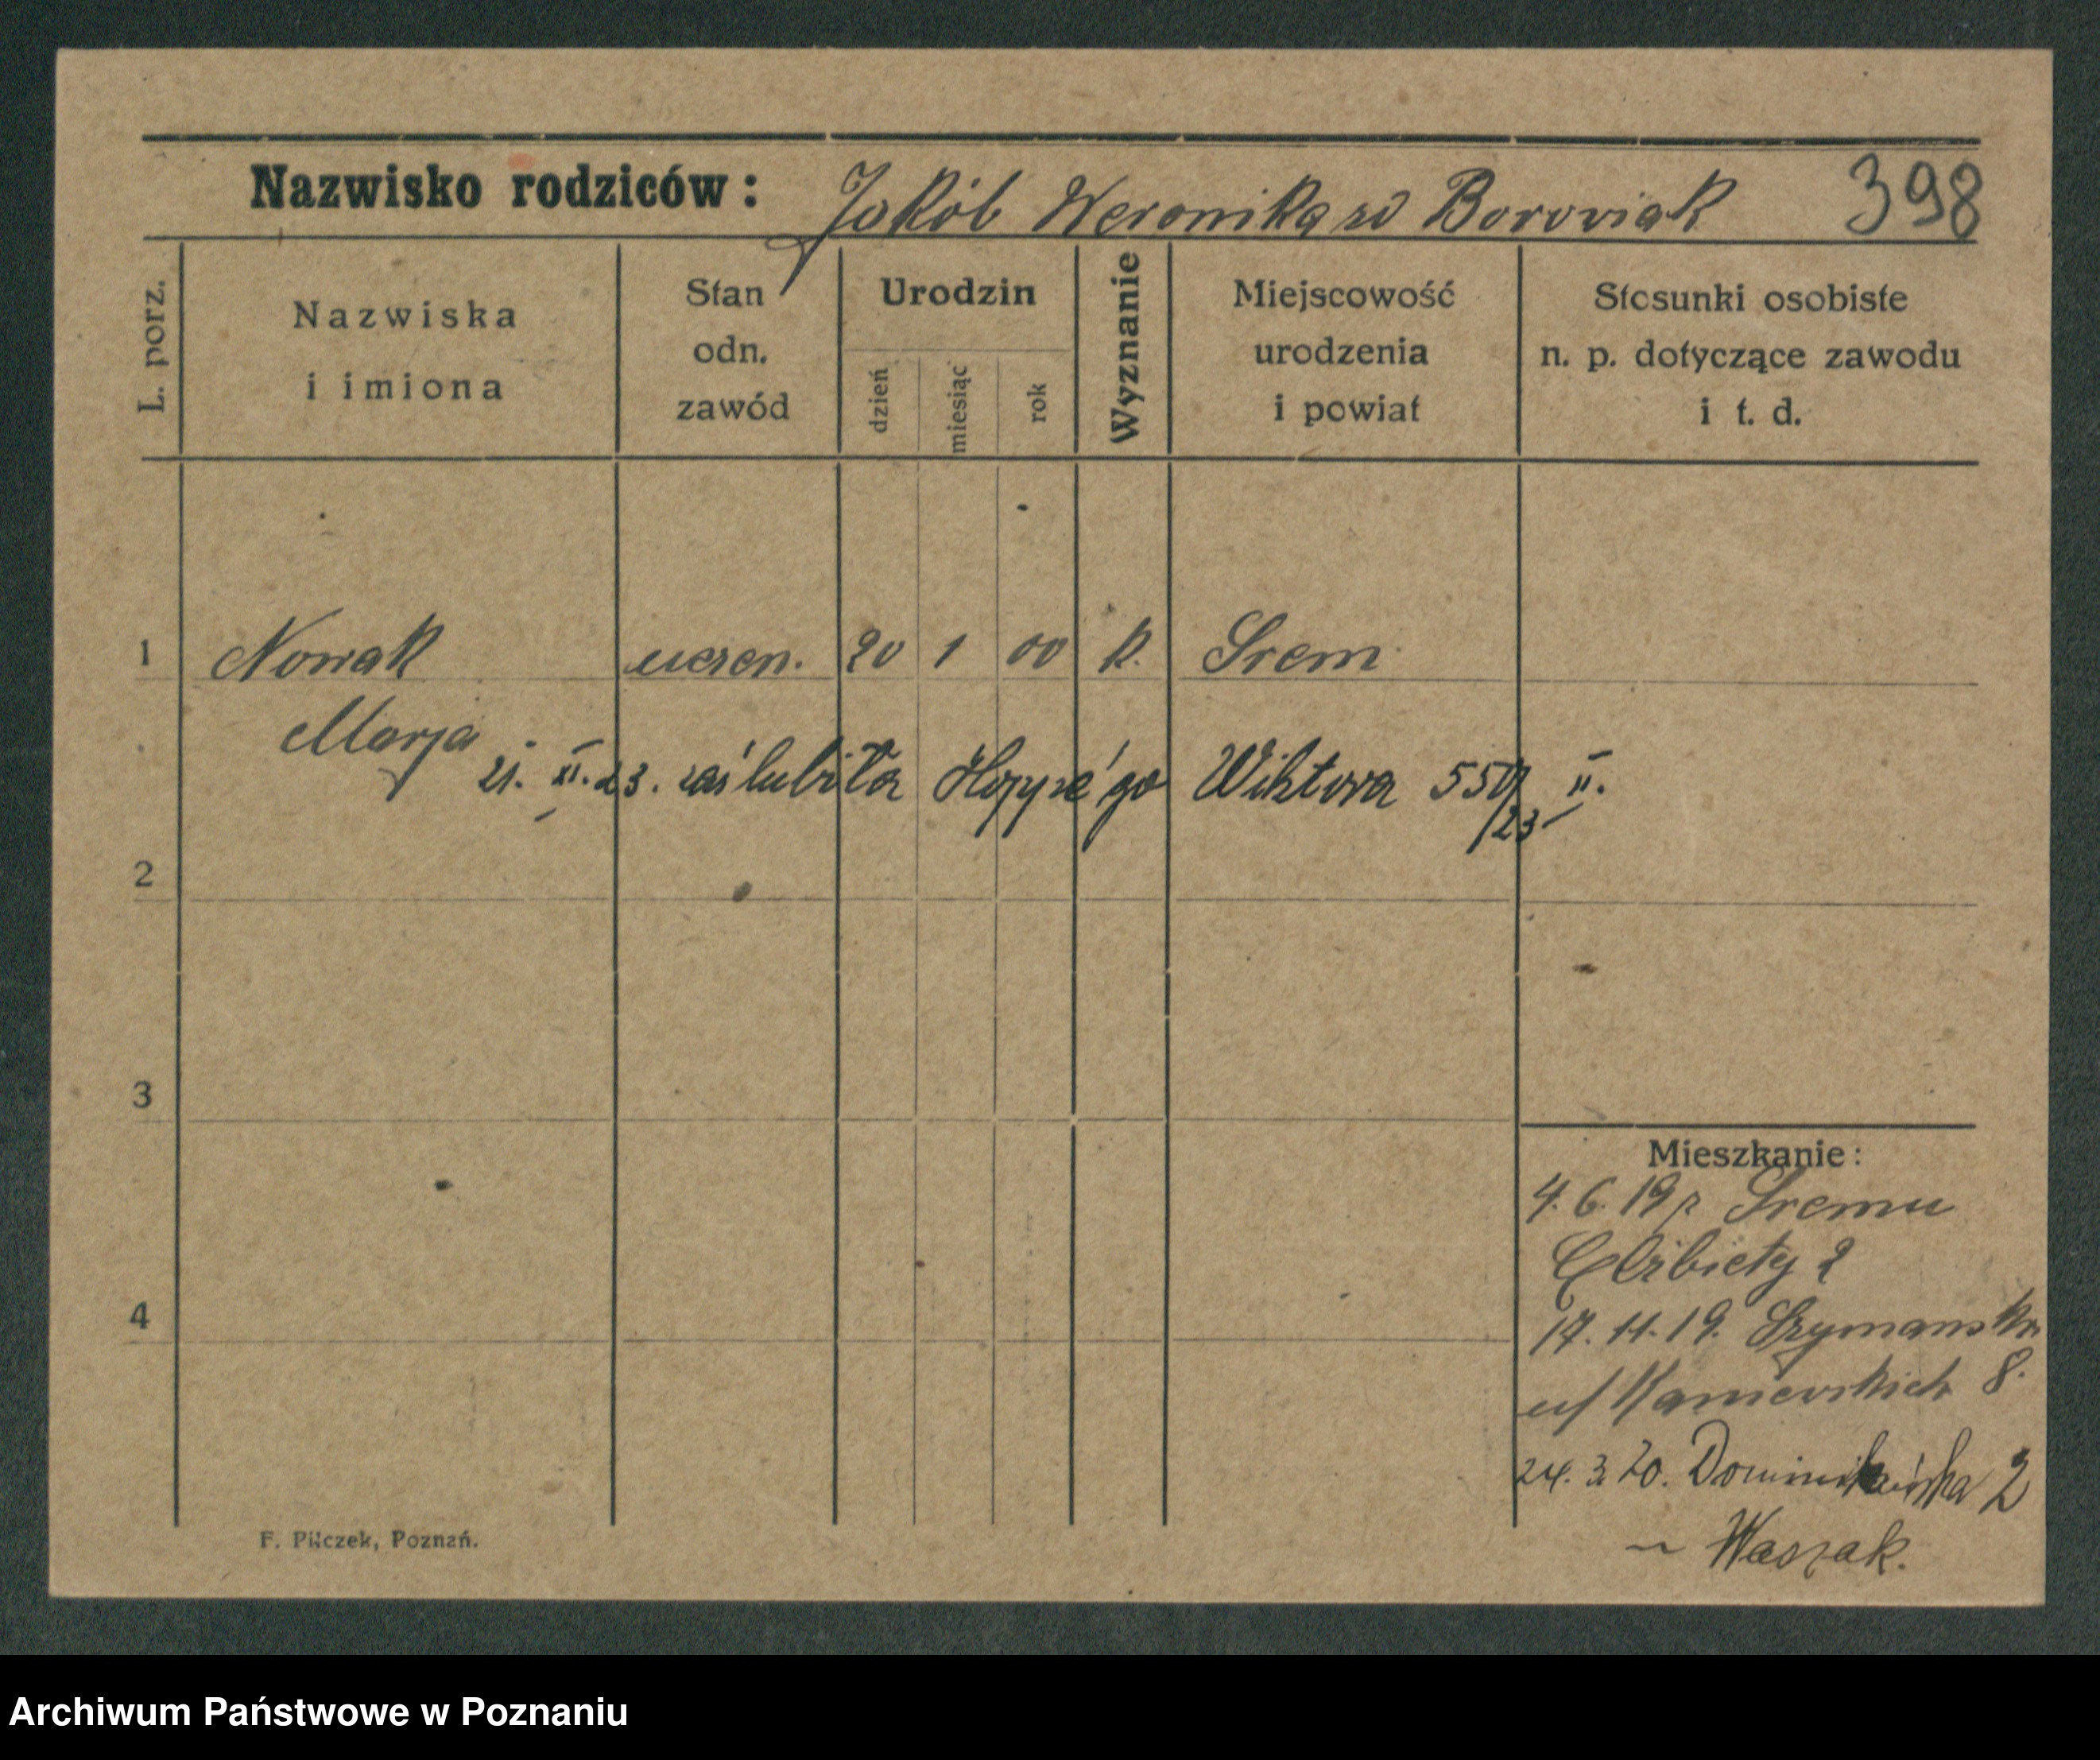 Nazwisko rodziców: Jakób Weronika zd Boroviak 398
L. porz.
Nazwiska
i imiona
Stan
odn.
zawód
Urodzin
dzień
miesiąc
rok
Wyznanie
Miejscowość
urodzenia
i powiat
Stosunki osobiste
n. p. dotyczące zawodu
i t. d.
1 Nowak uczen. 20 1 00 k. Srem
Marja
21. XI. 23. zaślubiła Hoppe'go Wiktora 550/23 II.
2
3
4
Mieszkanie:
4.6.19 z Sremu
Elżbiety 2
17.11.19. Szymanska
24.3.20. Dominikańska 2
~ Waszak.
F. Pilczek, Poznań.
Archiwum Państwowe w Poznaniu